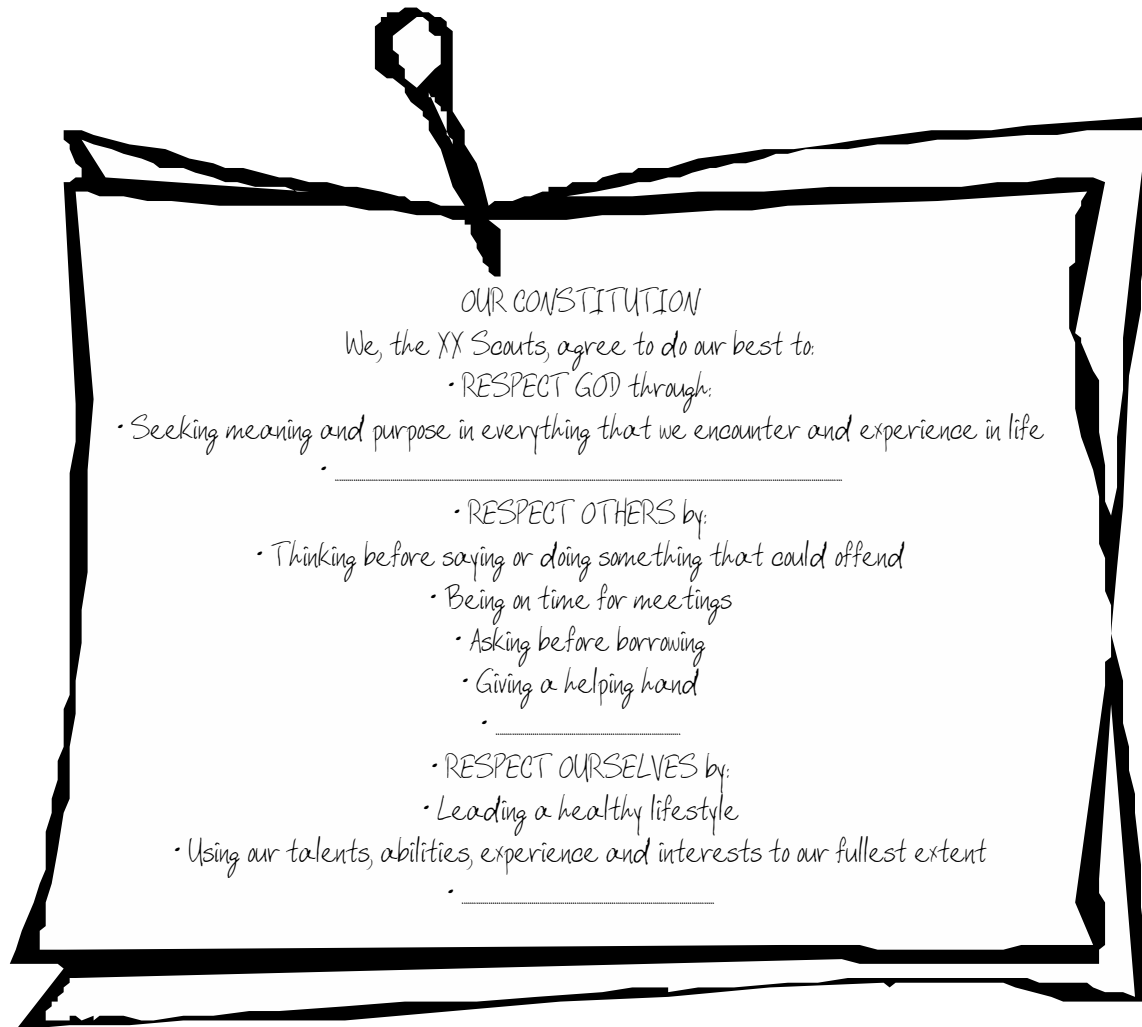 OUR CONSTITUTION
We, the XX Scouts, agree to do our best to:
• RESPECT GOD through:
• Seeking meaning and purpose in everything that we encounter and experience in life
• ........................................................................
• RESPECT OTHERS by:
• Thinking before saying or doing something that could offend
• Being on time for meetings
• Asking before borrowing
• Giving a helping hand
• ..............................
• RESPECT OURSELVES by:
• Leading a healthy lifestyle
• Using our talents, abilities, experience and interests to our fullest extent
• ........................................